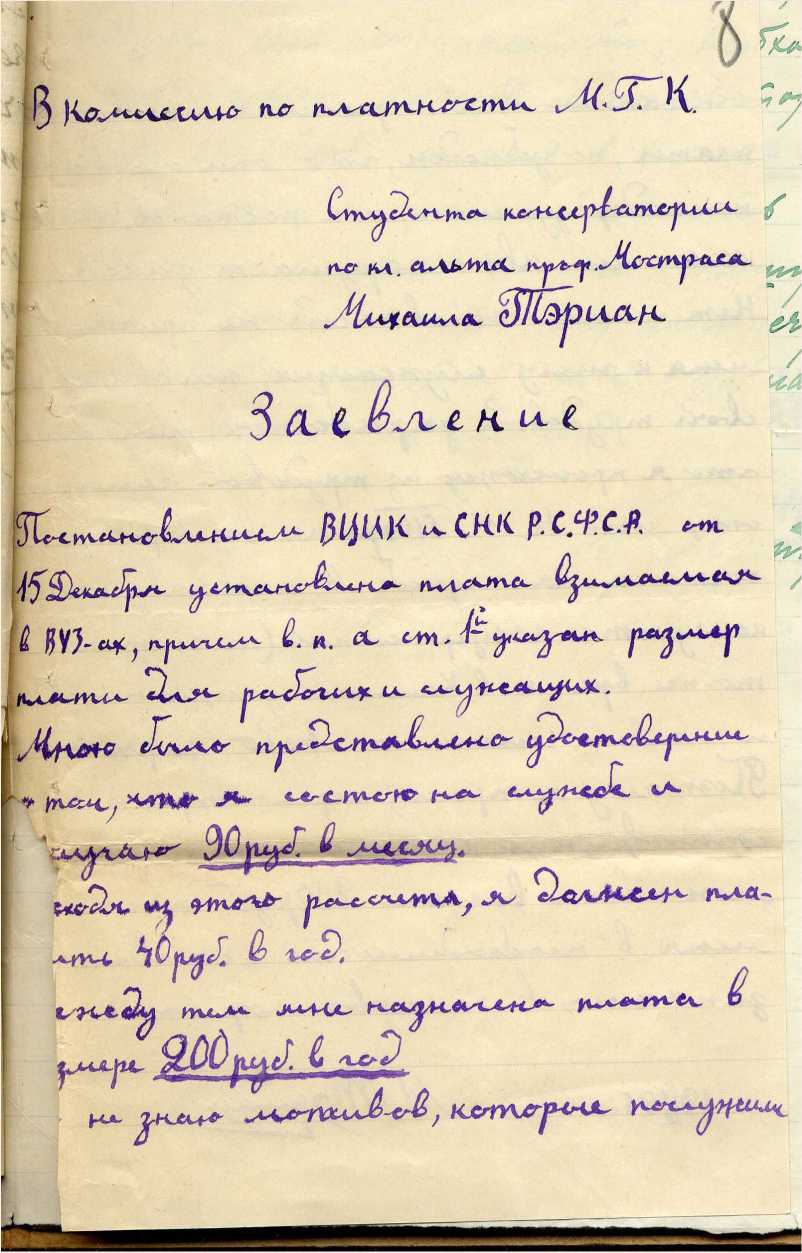 8
В комиссию по платности М.Г.К.
Студента консерватории
по кл. альта проф. Мостраса
Михаила Тэриан
Заевление
Постановлением ВЦИК и СНК Р.С.Ф.С.Р. от
15 Декабря установлена плата взимаемая
в ВУЗ-ах, причем в п. а ст. 1й указан размер
плати для рабочих и служащих.
Мною было представлено удостоверение
о том, что я состою на службе и
лучаю 90 руб. в месяц.
сходя из этого рассчета, я должен пла-
ить 40 руб. в год.
ежду тем мне назначена плата в
змере 200 руб. в год
не знаю мотивов, которые послужили